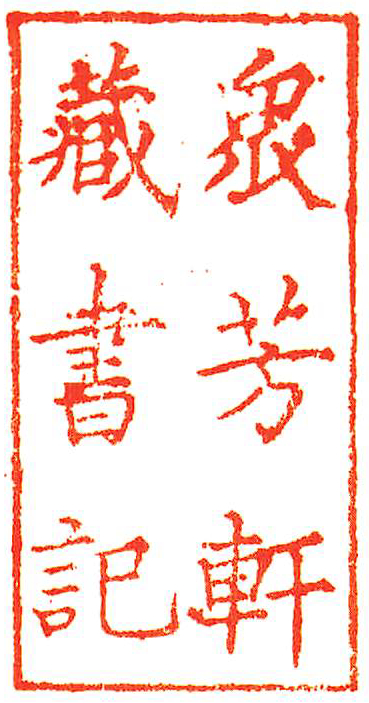 衆芳軒
藏書記